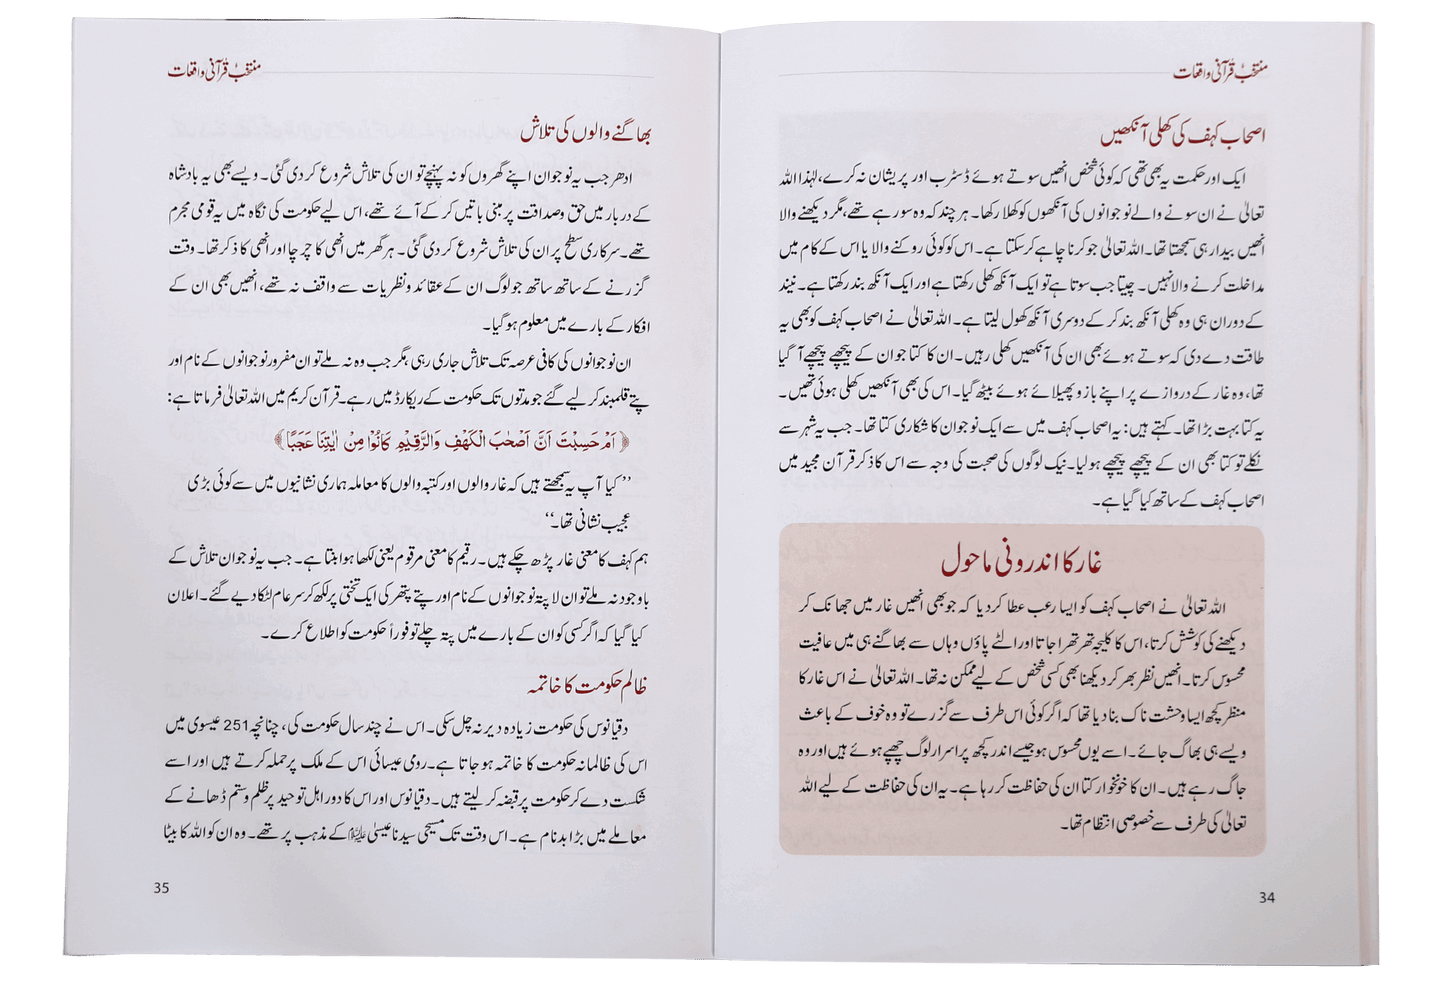 منتخب قرآنی واقعات
اصحاب کہف کی کھلی آنکھیں
ایک اور حکمت یہ بھی تھی کہ کوئی شخص انھیں سوتے ہوئے ڈسٹرب اور پریشان نہ کرے، لہٰذا اللہ
تعالیٰ نے ان سونے والے نوجوانوں کی آنکھوں کو کھلا رکھا۔ ہر چند کہ وہ سو رہے تھے، مگر دیکھنے والا
انھیں بیدار ہی سمجھتا تھا۔ اللہ تعالیٰ جو کرنا چاہے کر سکتا ہے۔ اس کو کوئی روکنے والا یا اس کے کام میں
مداخلت کرنے والا نہیں۔ چیتا جب سوتا ہے تو ایک آنکھ کھلی رکھتا ہے اور ایک آنکھ بند رکھتا ہے۔ نیند
کے دوران ہی وہ کھلی آنکھ بند کر کے دوسری آنکھ کھول لیتا ہے۔ اللہ تعالیٰ نے اصحاب کہف کو بھی یہ
طاقت دے دی کہ سوتے ہوئے بھی ان کی آنکھیں کھلی رہیں۔ ان کا کتا جو ان کے پیچھے پیچھے آ گیا
تھا، وہ غار کے دروازے پر اپنے بازو پھیلائے ہوئے بیٹھ گیا۔ اس کی بھی آنکھیں کھلی ہوئی تھیں۔
یہ کتا بہت بڑا تھا۔ کہتے ہیں: یہ اصحاب کہف میں سے ایک نوجوان کا شکاری کتا تھا۔ جب یہ شہر سے
نکلے تو کتا بھی ان کے پیچھے پیچھے ہو لیا۔ نیک لوگوں کی صحبت کی وجہ سے اس کا ذکر قرآن مجید میں
اصحاب کہف کے ساتھ کیا گیا ہے۔
غار کا اندرونی ماحول
اللہ تعالیٰ نے اصحاب کہف کو ایسا رعب عطا کر دیا کہ جو بھی انھیں غار میں جھانک کر
دیکھنے کی کوشش کرتا، اس کا کلیجہ تھرتھرا جاتا اور الٹے پاؤں وہاں سے بھاگنے ہی میں عافیت
محسوس کرتا۔ انھیں نظر بھر کر دیکھنا بھی کسی شخص کے لیے ممکن نہ تھا۔ اللہ تعالیٰ نے اس غار کا
منظر کچھ ایسا وحشت ناک بنا دیا تھا کہ اگر کوئی اس طرف سے گزرے تو وہ خوف کے باعث
ویسے ہی بھاگ جائے۔ اسے یوں محسوس ہو جیسے اندر کچھ پراسرار لوگ چھپے ہوئے ہیں اور وہ
جاگ رہے ہیں۔ ان کا خونخوار کتا ان کی حفاظت کر رہا ہے۔ یہ ان کی حفاظت کے لیے اللہ
تعالیٰ کی طرف سے خصوصی انتظام تھا۔
34
منتخب قرآنی واقعات
بھاگنے والوں کی تلاش
ادھر جب یہ نوجوان اپنے گھروں کو نہ پہنچے تو ان کی تلاش شروع کر دی گئی۔ ویسے بھی یہ بادشاہ
کے دربار میں حق و صداقت پر مبنی باتیں کر کے آئے تھے، اس لیے حکومت کی نگاہ میں یہ قومی مجرم
تھے۔ سرکاری سطح پر ان کی تلاش شروع کر دی گئی۔ ہر گھر میں انھی کا چرچا اور انھی کا ذکر تھا۔ وقت
گزرنے کے ساتھ ساتھ جو لوگ ان کے عقائد و نظریات سے واقف نہ تھے، انھیں بھی ان کے
افکار کے بارے میں معلوم ہو گیا۔
ان نوجوانوں کی کافی عرصہ تک تلاش جاری رہی مگر جب وہ نہ ملے تو ان مفرور نوجوانوں کے نام اور
پتے قلمبند کر لیے گئے جو مدتوں تک حکومت کے ریکارڈ میں رہے۔ قرآن کریم میں اللہ تعالیٰ فرماتا ہے:
﴿ اَمْ حَسِبْتَ اَنَّ اَصْحٰبَ الْكَهْفِ وَالرَّقِيْمِ كَانُوْا مِنْ اٰيٰتِنَا عَجَبًا ﴾
’’کیا آپ یہ سمجھتے ہیں کہ غار والوں اور کتبہ والوں کا معاملہ ہماری نشانیوں میں سے کوئی بڑی
عجیب نشانی تھا۔‘‘
ہم کہف کا معنی غار پڑھ چکے ہیں۔ رقیم کا معنی مرقوم یعنی لکھا ہوا بنتا ہے۔ جب یہ نوجوان تلاش کے
باوجود نہ ملے تو ان لاپتہ نوجوانوں کے نام اور پتے پتھر کی ایک تختی پر لکھ کر سرعام لٹکا دیے گئے۔ اعلان
کیا گیا کہ اگر کسی کو ان کے بارے میں پتہ چلے تو فوراً حکومت کو اطلاع کرے۔
ظالم حکومت کا خاتمہ
دقیانوس کی حکومت زیادہ دیر نہ چل سکی۔ اس نے چند سال حکومت کی، چنانچہ 251 عیسوی میں
اس کی ظالمانہ حکومت کا خاتمہ ہو جاتا ہے۔ رومی عیسائی اس کے ملک پر حملہ کرتے ہیں اور اسے
شکست دے کر حکومت پر قبضہ کر لیتے ہیں۔ دقیانوس اور اس کا دور اہل توحید پر ظلم و ستم ڈھانے کے
معاملے میں بڑا بدنام ہے۔ اس وقت تک مسیحی سیدنا عیسیٰ علیہ السلام کے مذہب پر تھے۔ وہ ان کو اللہ کا بیٹا
35